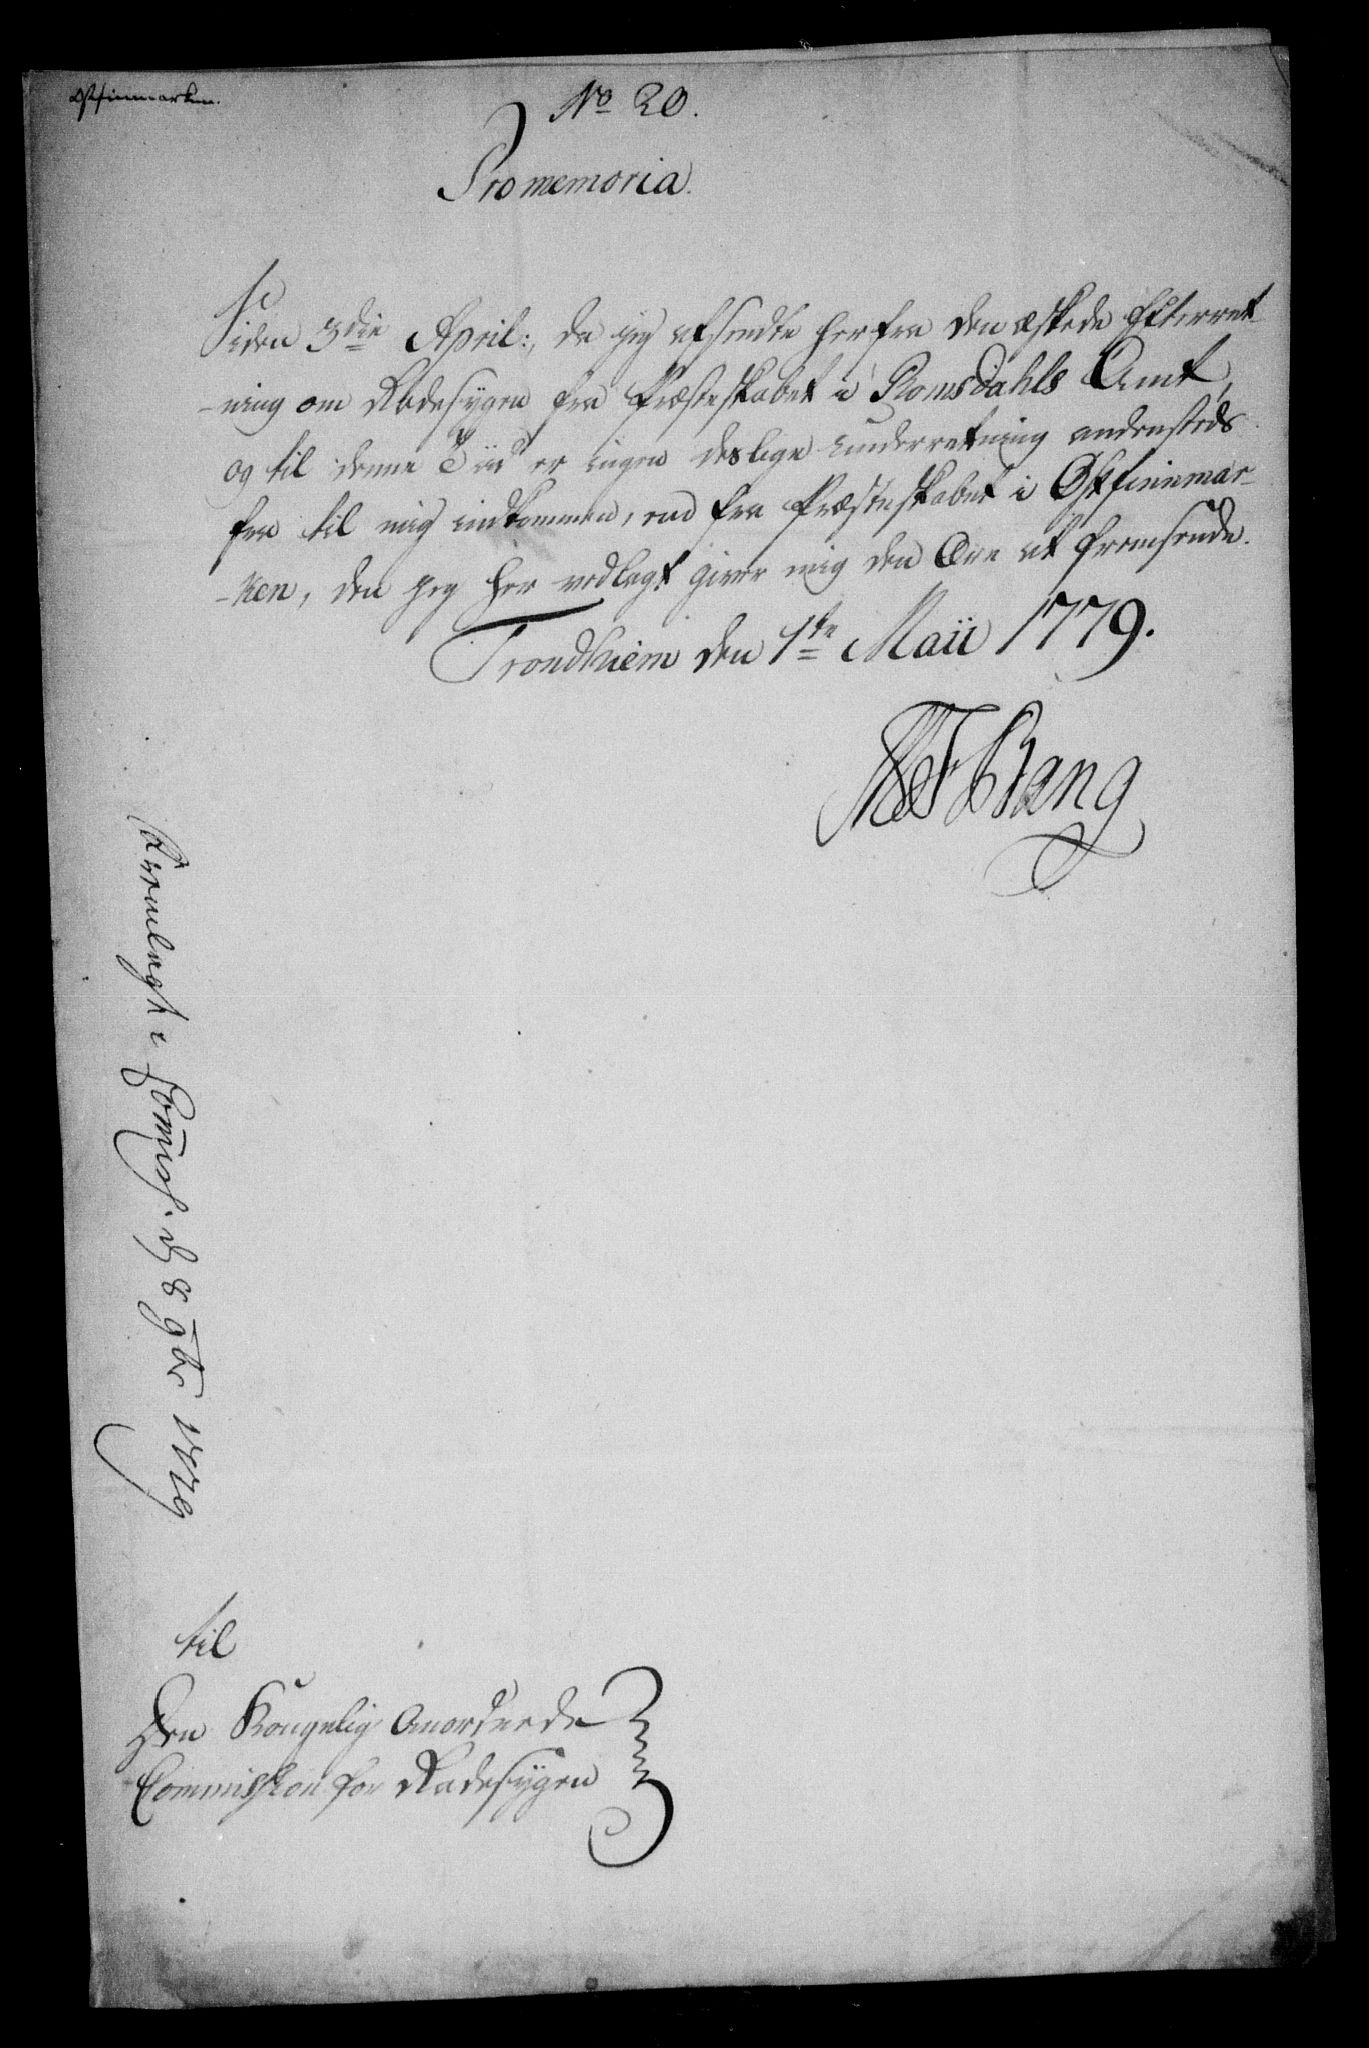 Ostfinmarken.
No 20.
Promemoria.
Siden 3die April:, da jeg afsendte herfra den æskede Efterret-
-ning om Radesygen fra Præsteskabet i Romsdahls Amt,
og til denne Tiid er ingen deslige underretning andensteds
fra til mig indkommen, end fra Præsteskabet i Østfinnmar-
-ken, den jeg her vedlagt giver mig den Ære at fremsende.
Trondhiem den 1te Maii 1779.
Bang
Fremlagt i Commiss. d 8 9br 1779
til
Den Kongelig Anordnede
Commission for Radesygen